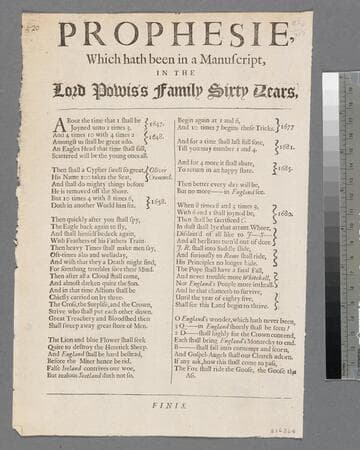 PROPHESIE,
Which hath been in a Manuscript,
IN THE
Lord Powis's Family Sixty Years,
ABout the time that 1 shall be
Joyned unto 2 times 3,
And 4 times 10 with 4 times 2
Amongst us shall be great ado.
1647.
1648.
An Eagles Head that time shall fall,
Scattered will be the young ones all.
Then shall a Cypher swell so great,
His Name 100 takes the Seat,
Oliver
Cromwel.
And shall do mighty things before
He is removed off the Shore.
But 10 times 4 with 8 times 6,
Doth in another World him fix.
1658.
Then quickly after you shall spy,
The Eagle back again to fly,
And shall himself bedeck again,
With Feathers of his Fathers Train.
Then heavy Times shall make men say,
Oft-times alass and welladay,
And wish that they a Death might find,
For seething troubles sore their Mind.
Then after all a Cloud shall come,
And almost darken quite the Son.
And in that time Assisses shall be
Chiefly carried on by three.
The Cross, the Surplice, and the Crown,
Strive who shall put each other down.
Great Treachery and Bloodshed then
Shall sweep away great store of Men.
The Lion and blue Flower shall seek
Quite to destroy the Heretick Sheep.
And England shall be hard bestead,
Before the Miter hence be rid.
False Ireland contrives our woe,
But zealous Scotland doth not so.
Begin again at 1 and 6,
And 10 times 7 begins these Tricks.
1677
And for a time shall last full sore,
Till you may number 1 and 4.
1681.
And for 4 more it shall abate,
To return in an happy state.
1685.
Then better every day will be,
But no more — in England.
When 8 times 8 and 5 times 5,
With 6 and 1 shall joyned be,
Then shall be sacrificed C.
1680.
In dust shall lye that arrant Whore,
And all her Brats turn'd out of door
J. R. shall into Saddle slide,
And furiously to Rome shall ride,
His Principles no longer hide.
The Pope shall have a fatal Fall,
And never trouble more Whitehall,
Nor England's People more inthrall.
And he that chanceth to survive,
Until the year of eighty five,
Shall see this Land begin to thrive.
O England's wonder, which hath never been,
3 O — in England shortly shall be seen!
1 D — shall highly for the Crown contend,
Each shall bring England's Monarchy to end.
B — shall fall into contempt and scorn,
And Gospel-Angels shall our Church adorn.
If any ask, how this shall come to pass,
The Fox shall ride the Goose, the Goose the
Ass.
FINIS.